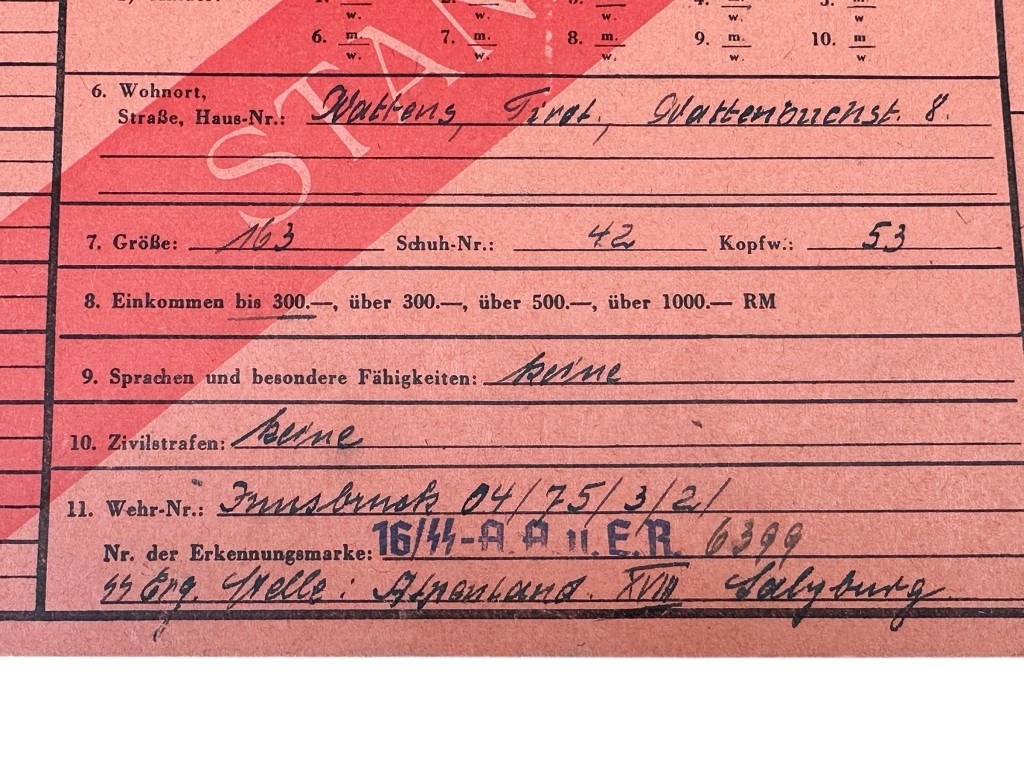 STAN
6. m. w. 7. m. w. 8. m. w. 9. m. w. 10. m w.
6. Wohnort,
Straße, Haus-Nr.: Wattens, Tirol, Wattenbuchst. 8.
7. Größe: 163 Schuh-Nr.: 42 Kopfw.: 53
8. Einkommen bis 300.—, über 300.—, über 500.—, über 1000.— RM
9. Sprachen und besondere Fähigkeiten: keine
10. Zivilstrafen: keine
11. Wehr-Nr.: Innsbruck 04/75/3/2/
Nr. der Erkennungsmarke: 16/SS-A. A. u. E. R. 6399
SS Erg. Stelle: Alpenland. XVIII Salzburg